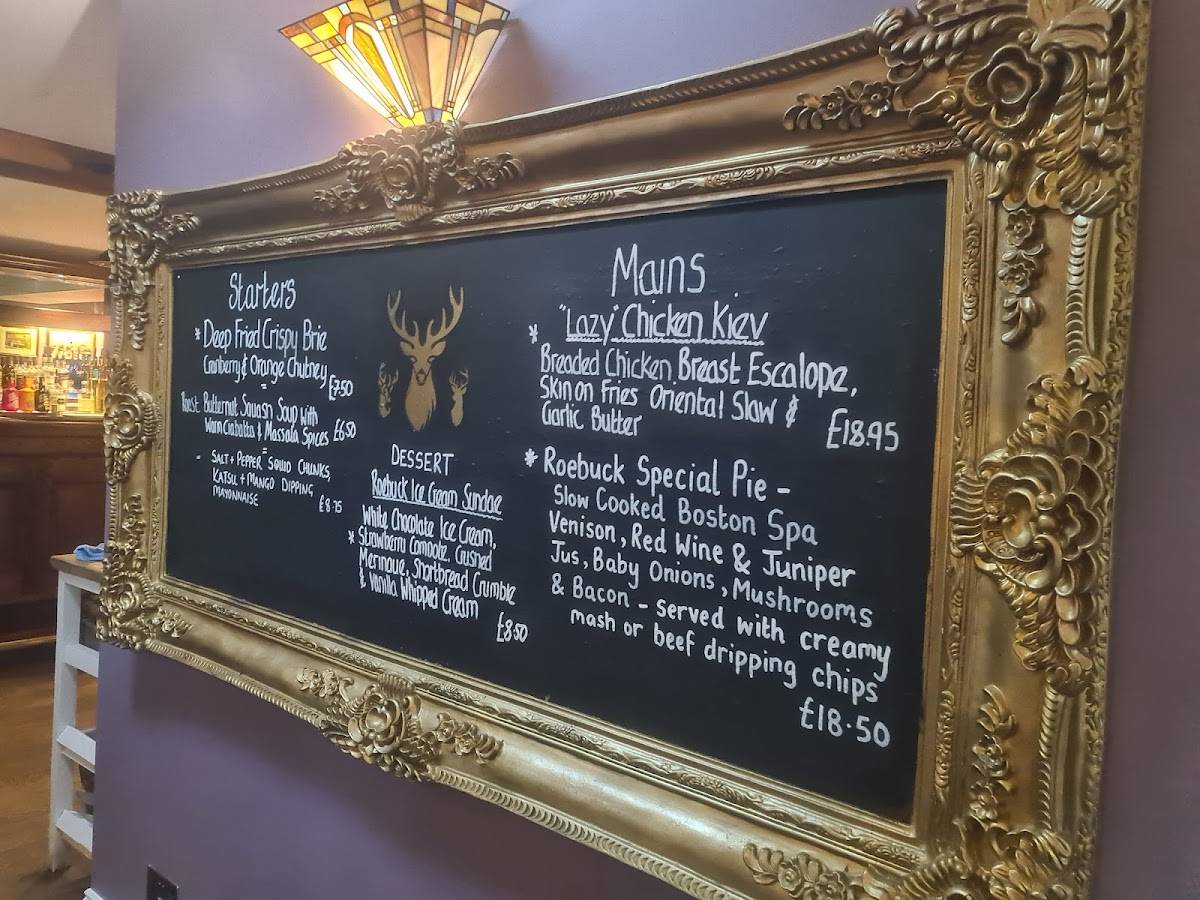 Starters
* Deep Fried Crispy Brie
Cranberry & Orange Chutney
£7.50
Roast Butternut Squash Soup with
Warm Ciabatta & Massala Spices £6.50
- SALT + PEPPER SQUID CHUNKS,
KATSU + MANGO DIPPING
MAYONNAISE £8.75
DESSERT
Roebuck Ice Cream Sundae
White Chocolate Ice Cream,
* Strawberry Compote, Crushed
Meringue, Shortbread Crumble
& Vanilla Whipped Cream
£8.50
Mains
* "Lazy" Chicken Kiev
Breaded Chicken Breast Escalope,
Skin on Fries Oriental Slaw &
Garlic Butter £18.95
* Roebuck Special Pie -
Slow Cooked Boston Spa
Venison, Red Wine & Juniper
Jus, Baby Onions, Mushrooms
& Bacon - served with creamy
mash or beef dripping chips
£18.50